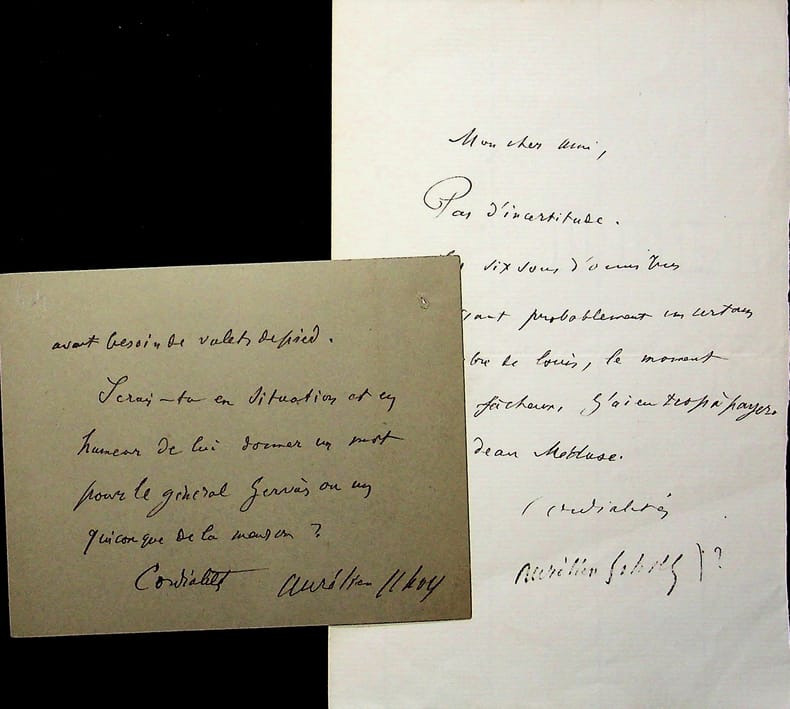 avait besoin de valets de pied.
Serais-tu en situation et en
humeur de lui donner un mot
pour le général Gervais ou un
quiconque de la maison ?
Cordialités Aurélien Scholl
Mon cher ami,
Pas d'incertitude.
six sous d'omnibus
probablement un certain
bre de louis, le moment
fâcheux, J'ai eu trop à payer
dean Méduse.
Cordialités
Aurélien Scholl ) ?